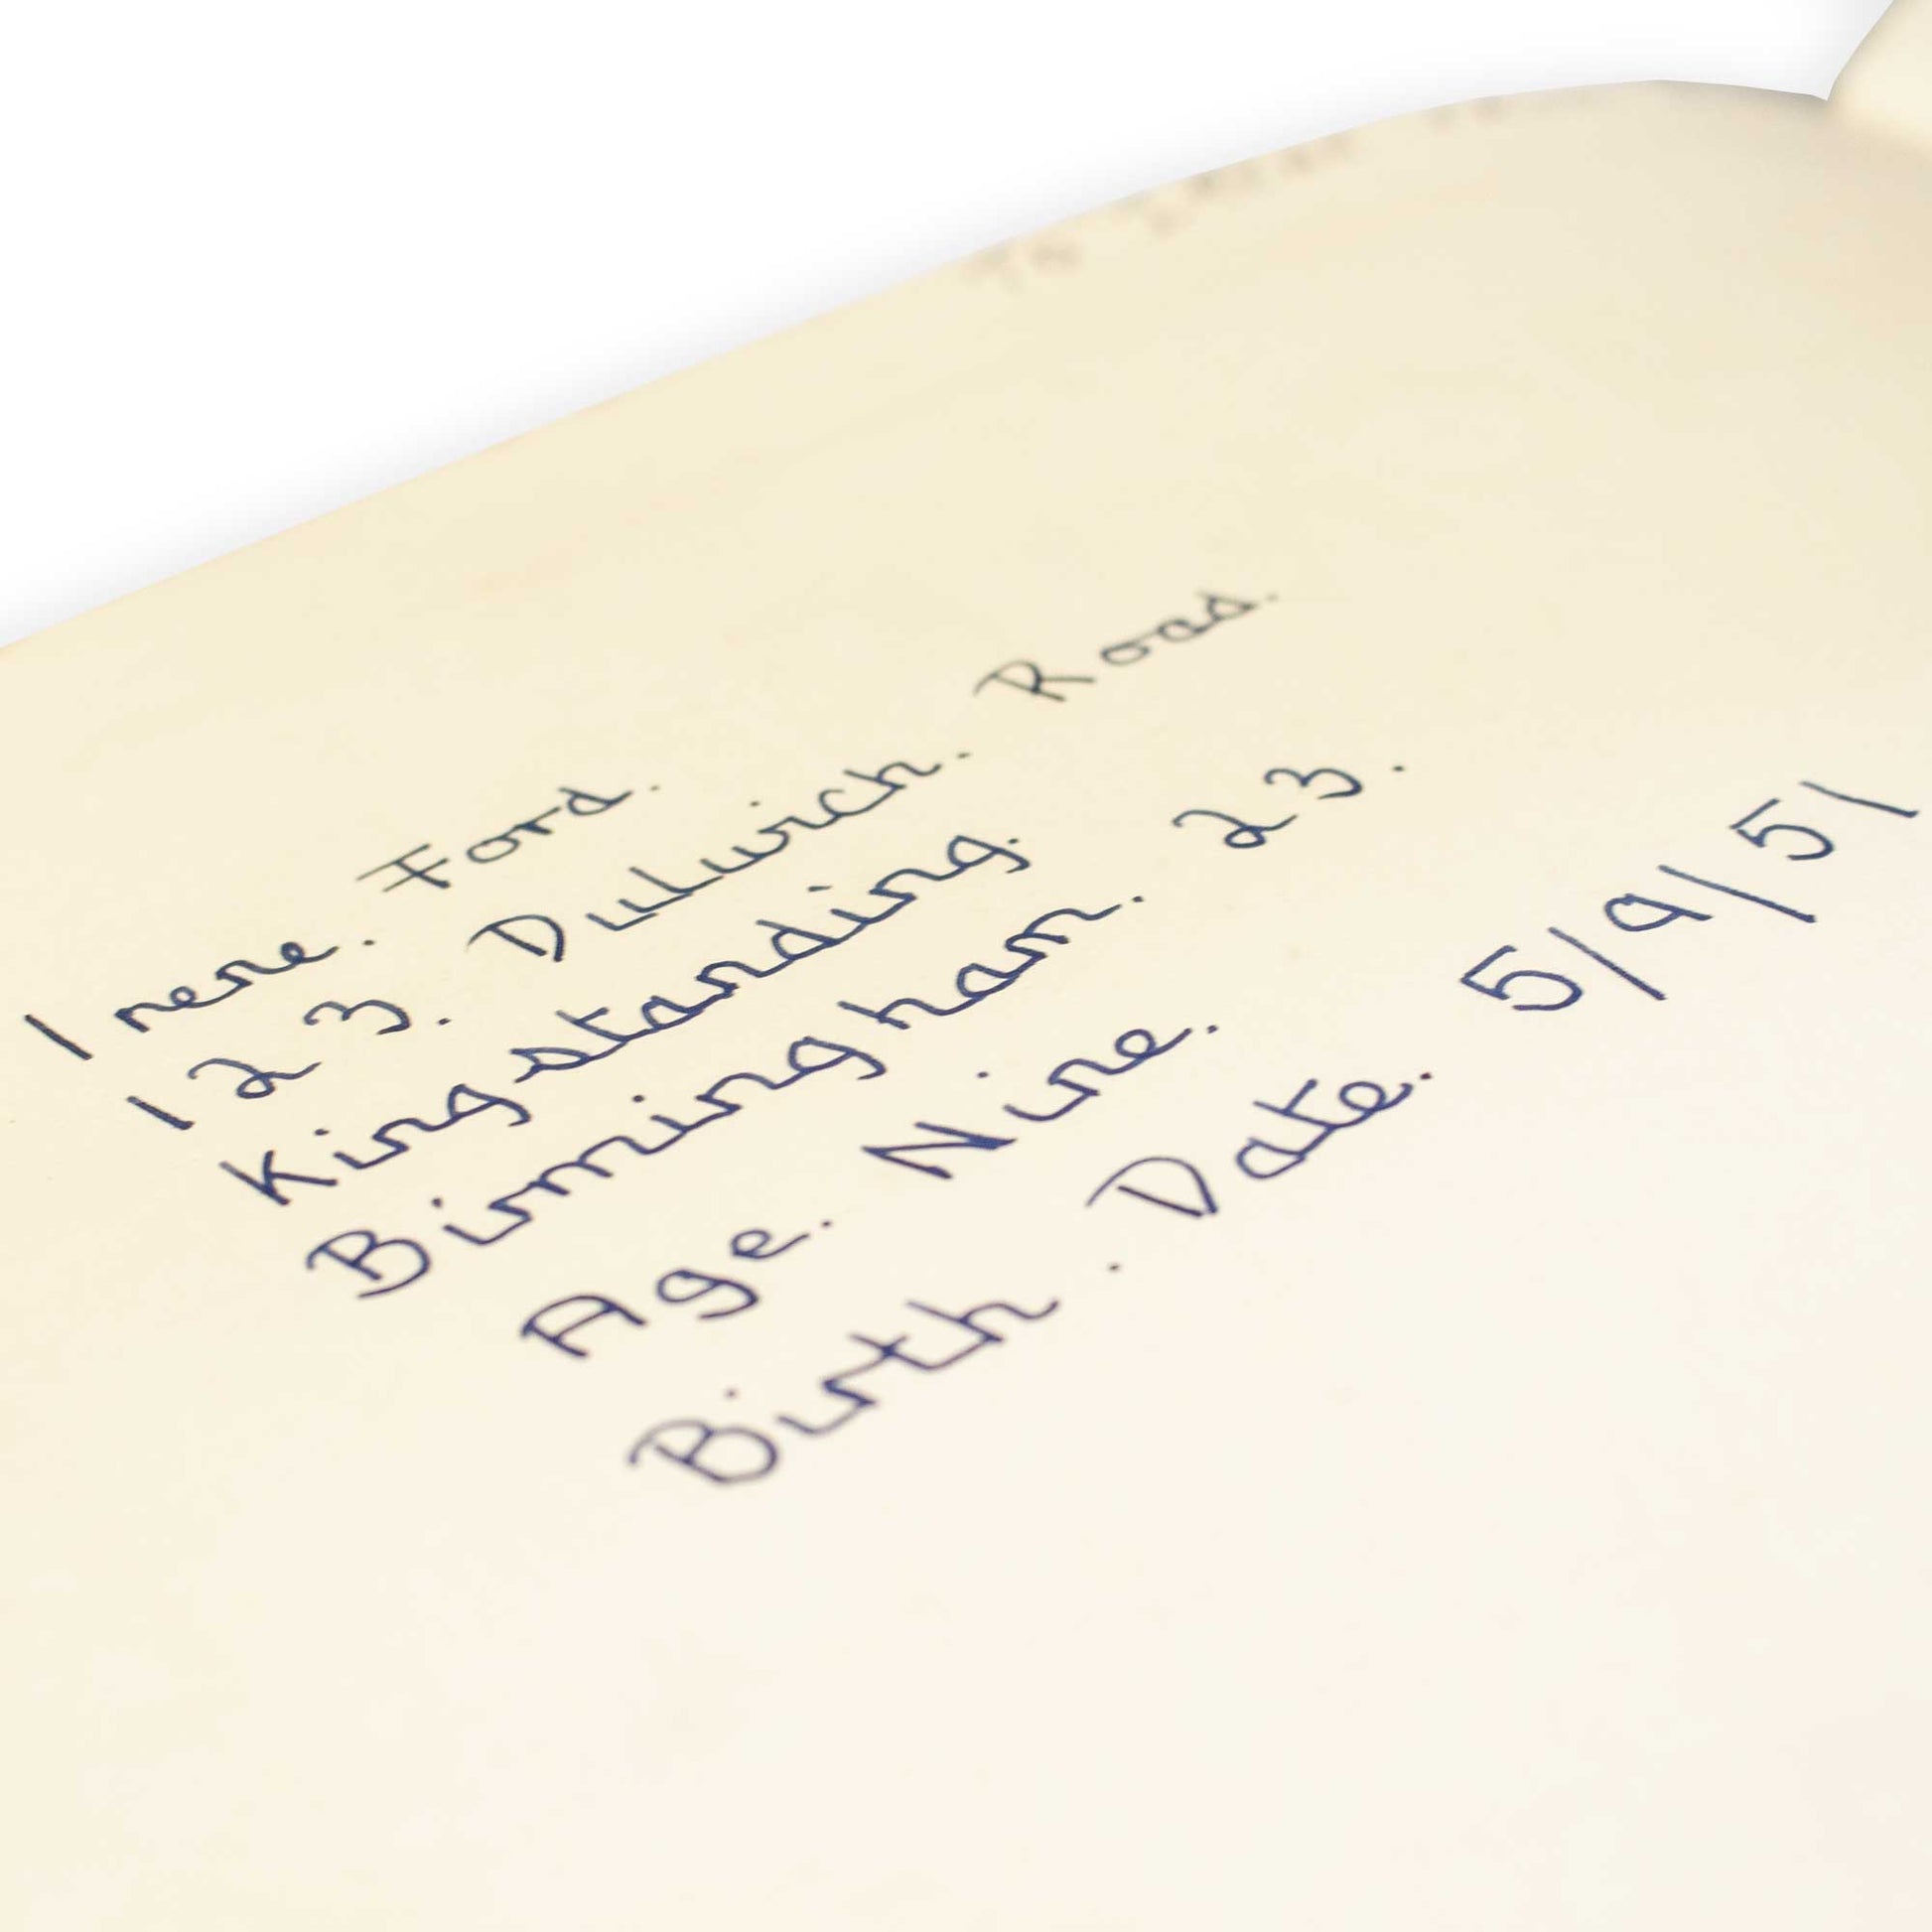 Irene. Ford.
123. Dulwich. Road.
Kingstanding.
Birmingham. 23.
Age. Nine.
Birth. Date. 5/9/51